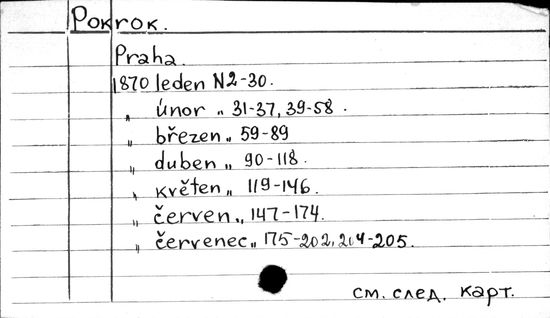 Pokrok.
Praha.
1870 leden N2-30.
„ únor „ 31-37, 39-58.
„ březen „ 59-89
„ duben „ 90-118.
„ květen „ 119-146.
„ červen „ 147-174.
„ červenec „ 175-202, 204-205.
см. след. карт.